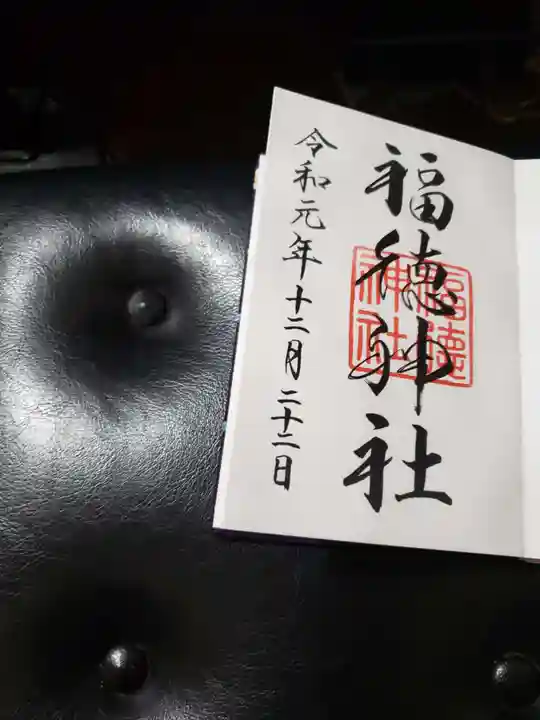 福徳神社
福徳神社
令和元年十二月二十二日